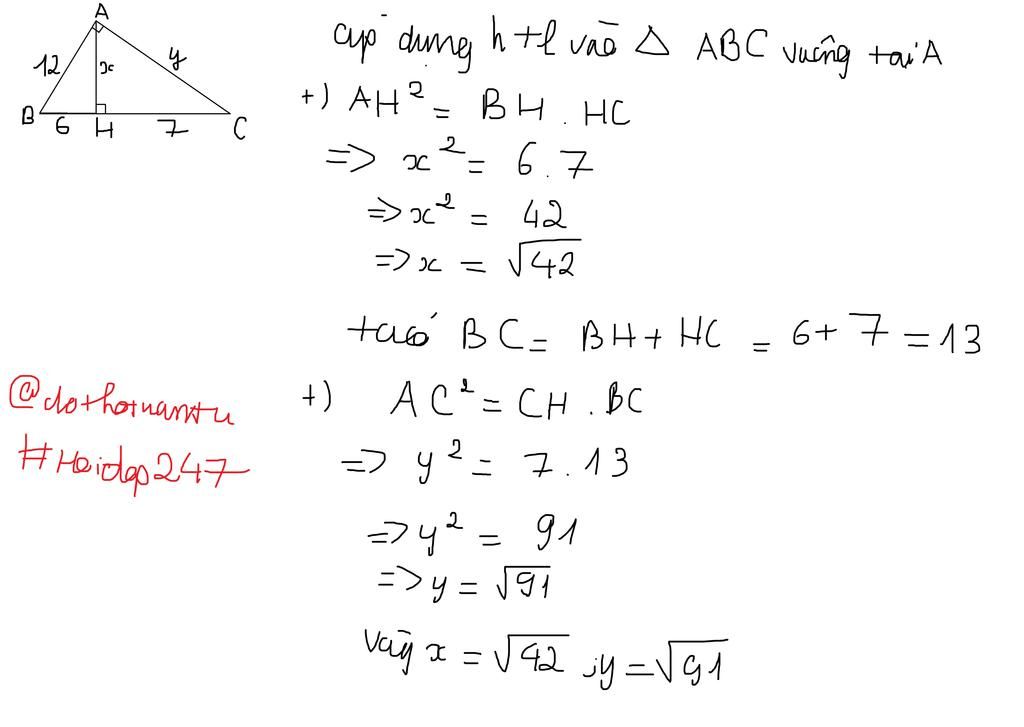 A
12 x y
B 6 H 7 C
áp dụng htl vào △ ABC vuông tại A
+) AH² = BH . HC
=> x² = 6.7
=> x² = 42
=> x = √42
ta có BC = BH + HC = 6 + 7 = 13
+) AC² = CH . BC
=> y² = 7.13
=> y² = 91
=> y = √91
vậy x = √42 ; y = √91
#Hoidap247